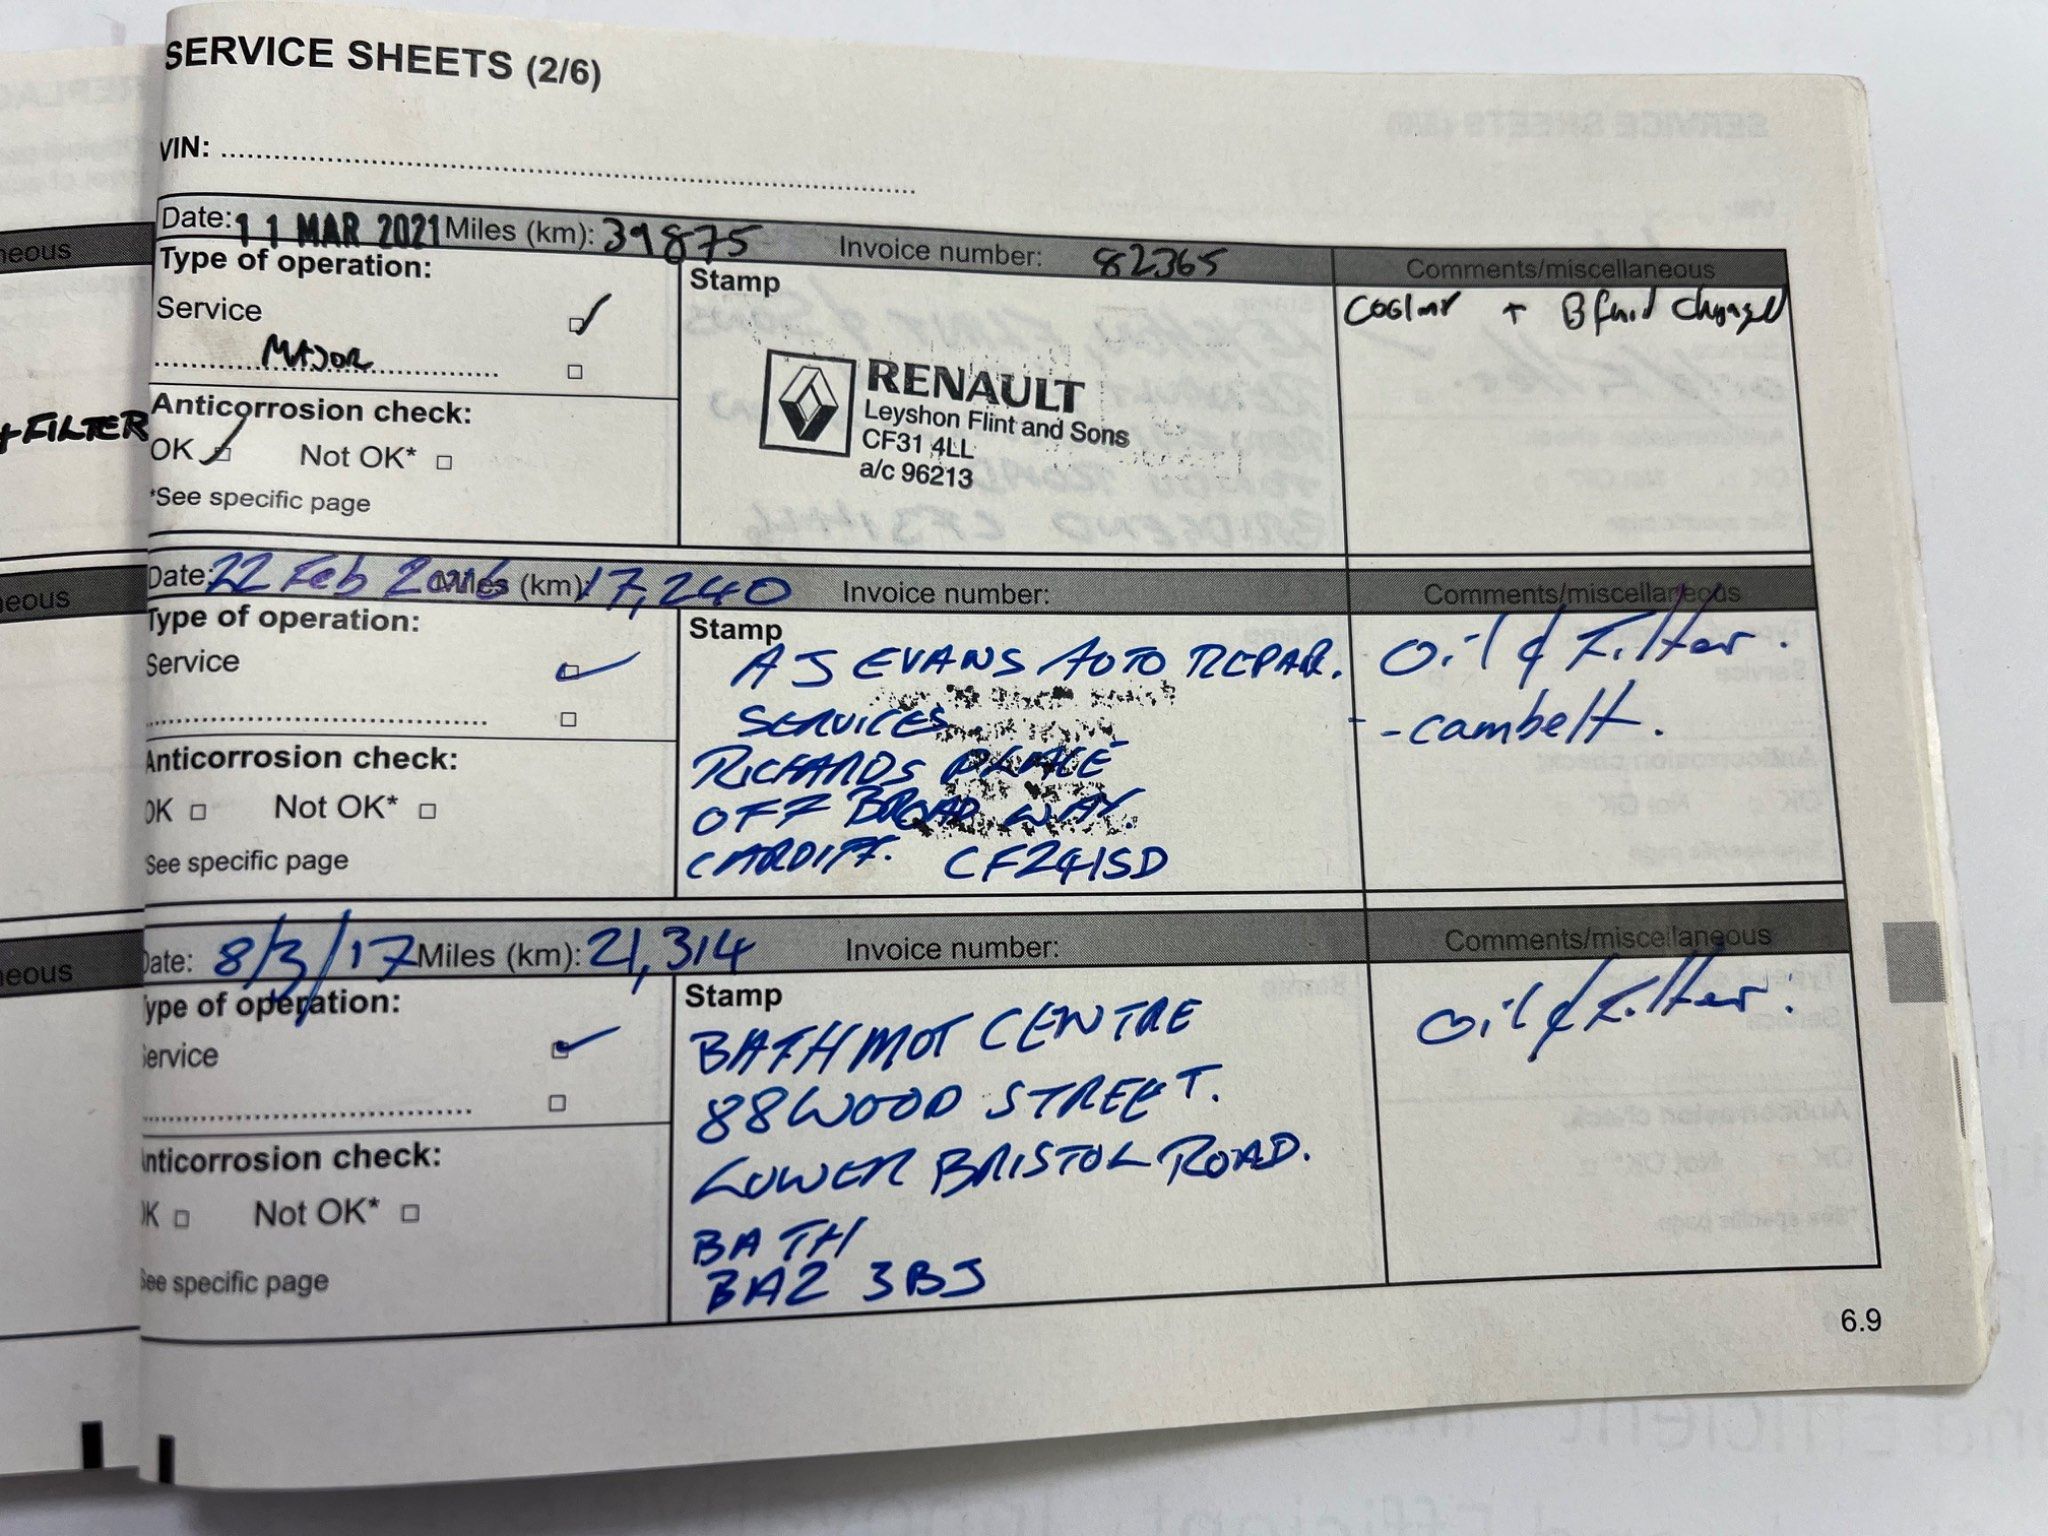 SERVICE SHEETS (2/6)
VIN:
Date: 11 MAR 2021 Miles (km): 39875 Invoice number: 82365 Comments/miscellaneous
Type of operation:
Service
MAJOR
Anticorrosion check:
OK Not OK*
*See specific page
Stamp
RENAULT
Leyshon Flint and Sons
CF31 4LL
a/c 96213
Coolant + B fluid changed
Date: 22 Feb 2016 Miles (km): 17,240 Invoice number: Comments/miscellaneous
Type of operation:
Service
Anticorrosion check:
OK Not OK*
See specific page
Stamp
A J EVANS AUTO REPAIR.
SERVICES
RICHARDS PLACE
OFF BROADWAY.
CARDIFF. CF241SD
oil & Filter.
- cambelt.
Date: 8/3/17 Miles (km): 21,314 Invoice number: Comments/miscellaneous
Type of operation:
Service
Anticorrosion check:
OK Not OK*
See specific page
Stamp
BATH MOT CENTRE
88 WOOD STREET.
LOWER BRISTOL ROAD.
BATH
BA2 3BJ
oil & Filter.
6.9
neous
+ FILTER
neous
neous